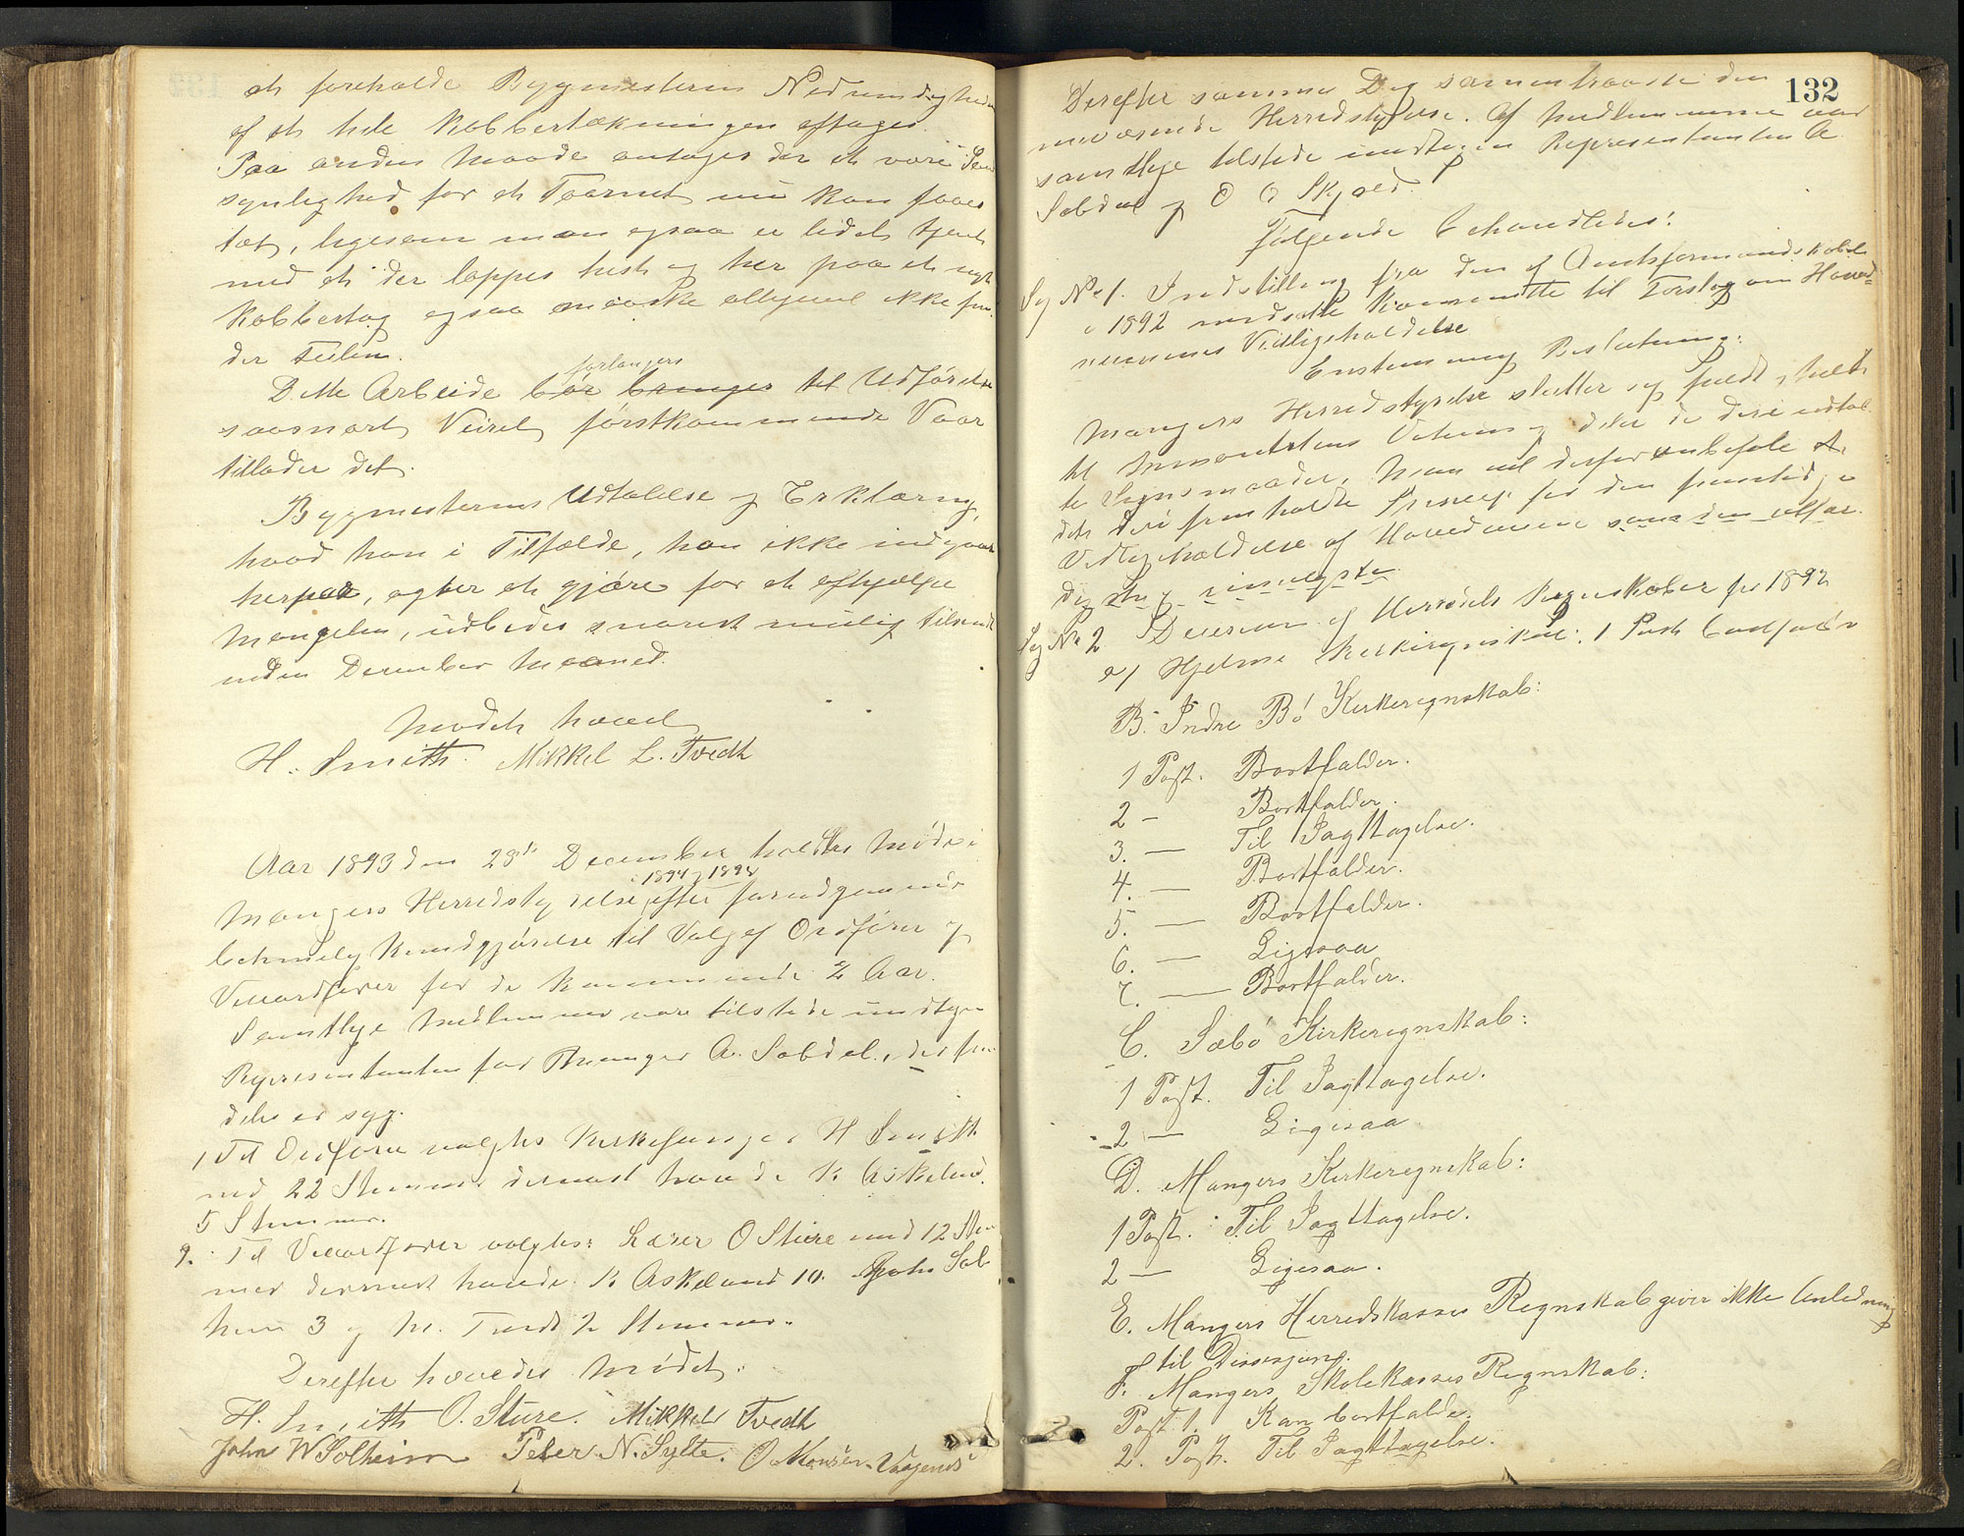 at foreholde Bygmesteren Nødvendigheden
af at hele Kobbertækningen aftages.
Paa anden Maade antages der at være
synlighed for at Taarnet nu kan faaes
tæt, ligesom man ogsaa er lidet tjent
med at der lappes hist og her paa et nyt
Kobbertag ogsaa maaske alligevel ikke fin-
der Feilen.
forlanges
Dette Arbeide bør bringes til Udførelse
saasnart Veiret førstkommende Vaar
tillader det.
Bygmesterens Udtalelse og Erklæring,
hvad han i Tilfælde, han ikke indgaar
herpaa, agter at gjøre for at afhjælpe
Mangelen, udbedes snarest mulig tilsendt
inden December Maaned.
Mødet hævet
H. Smith. Mikkel L. Tvedt
Aar 1893 den 28de December holdtes Møde i
i 1894 og 1895
Mangers Herredstyrelse efter forudgaaende
betimelig Kundgjørelse til Valg af Ordfører og
Viceordfører for de kommende 2 Aar.
Samtlige Medlemmer vare tilstede undtagen
Representanten for Manger A. Sabdal, der frem-
deles er syg.
1 Til Ordfører valgtes Kirkesanger H Smith
med 22 Stemmer dernæst havde K. Askeland
5 Stemmer.
2. Til Viceordfører valgtes: Lærer O Sture med 12 Stem-
mer dernæst havde K Askeland 10. John Sol-
heim 3 og M. Tvedt 2 Stemmer.
Derefter hævedes Mødet.
H. Smith O. Sture. Mikkel Tvedt
John W Solheim Peter N. Sylte. O Monsen Vaagenes
132
Derefter samme Dag sammentraadte den
nuværende Herredstyrelse. Af Medlemmerne var
samtlige tilstede undtagen Representanten A.
Sabdal og O O Skjold.
Følgende behandledes:
Sag No 1. Indstilling fra den af Amtsformandskabet
i 1892 nedsatte Kommitte til Forslag om Hoved-
veienes Vedligeholdelse
Enstemmig Beslutning:
Mangers Herredstyrelse slutter sig fuldt og helt
til Amtets og deler de deri udtal-
te Synsmaader. Man vil derfor anbefale at
det deri fremholdte Princip for den fremtidige
Vedligeholdelse af Hovedveiene som den
og rimeligste
Sag No 2 Decision af Herredets Regnskaber for 1892
a) Hjelme Kirkeregnskab: 1 Post bortfalder
B. Indre Bø Kirkeregnskab:
1 Post. Bortfalder.
2 — Bortfalder.
3. — Til Iagttagelse.
4. — Bortfalder.
5. — Bortfalder.
6. — Ligesaa
7. — Bortfalder.
C. Sæbø Kirkeregnskab:
1 Post. Til Iagttagelse.
2 — Ligesaa
D. Mangers Kirkeregnskab:
1 Post. Til Iagttagelse.
2 — Ligesaa.
E. Mangers Herredskasses Regnskab giver ikke Anledning
til Decisjon.
F. Mangers Skolekasses Regnskab:
Post 1. Kan bortfalde.
2. Post. Til Iagttagelse.